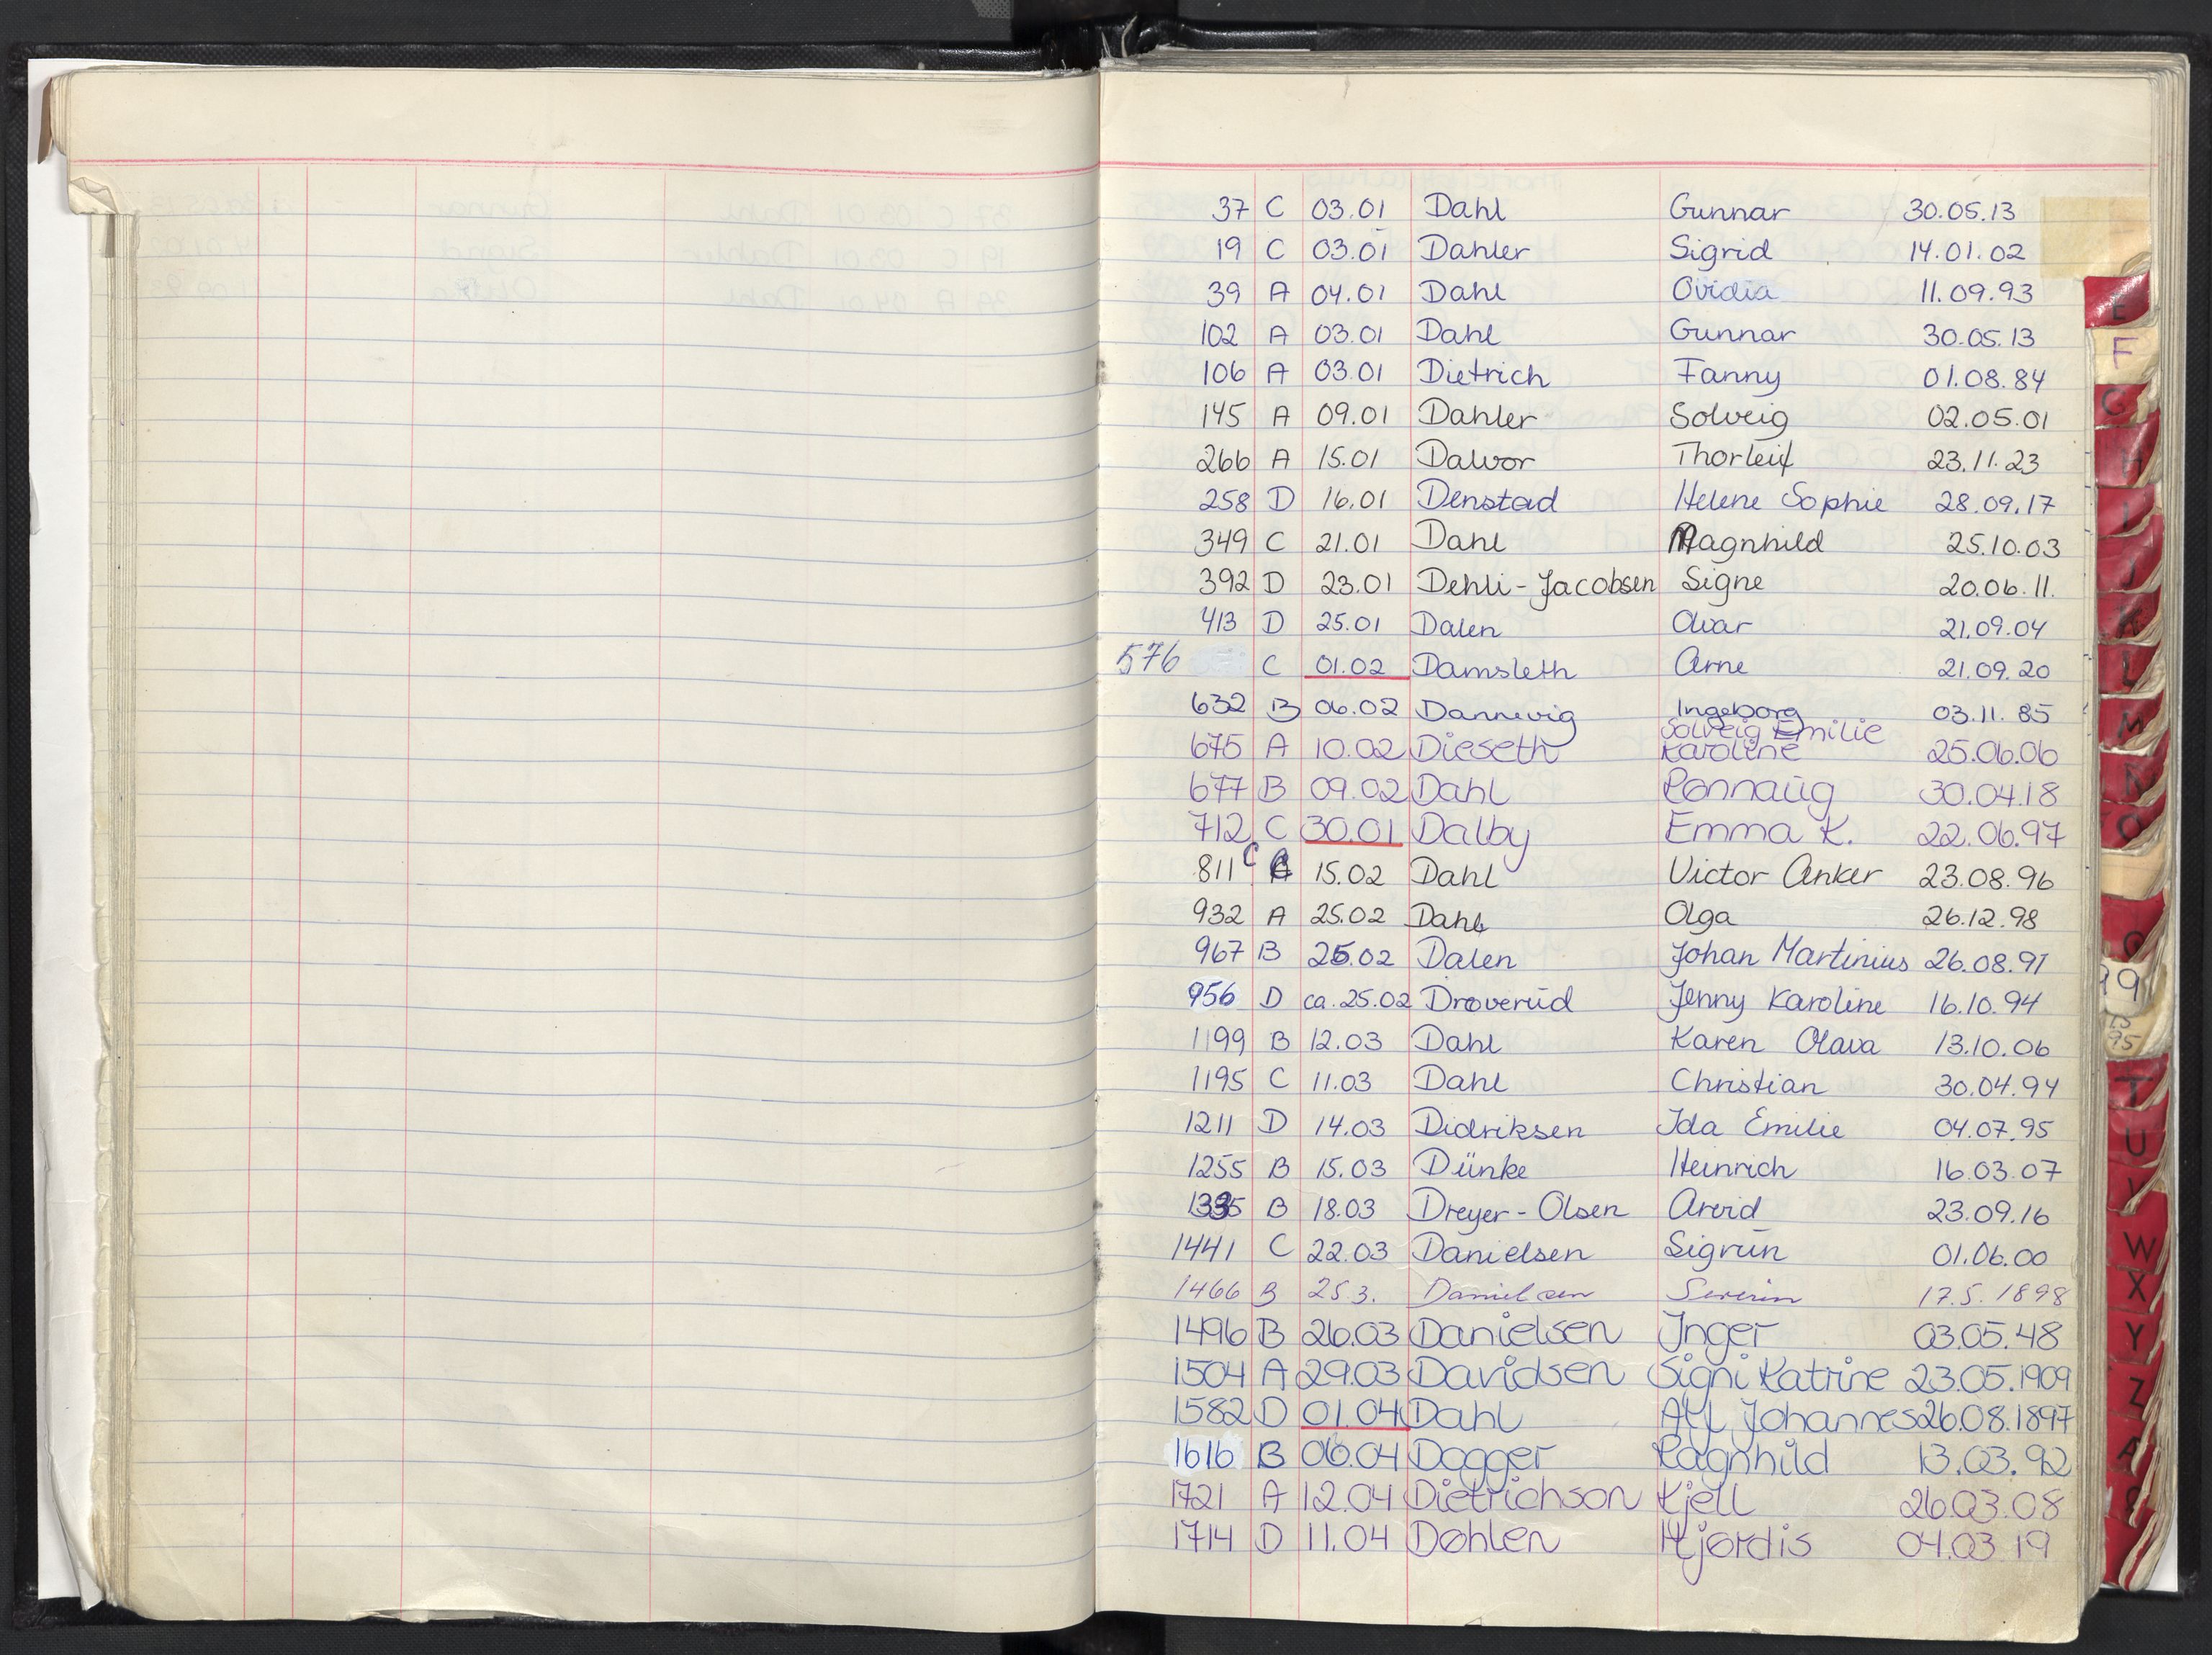 37 C 03.01 Dahl Gunnar 30.05.13
19 C 03.01 Dahler Sigrid 14.01.02
39 A 04.01 Dahl Ovidia 11.09.93
102 A 03.01 Dahl Gunnar 30.05.13
106 A 03.01 Dietrich Fanny 01.08.84
145 A 09.01 Dahler Solveig 02.05.01
266 A 15.01 Dalvor Thorleif 23.11.23
258 D 16.01 Denstad Helene Sophie 28.09.17
349 C 21.01 Dahl Magnhild 25.10.03
392 D 23.01 Dehli-Jacobsen Signe 20.06.11.
413 D 25.01 Dalen Olvar 21.09.04
576 C 01.02 Damsleth Arne 21.09.20
632 B 06.02 Dannevig Ingeborg 03.11.85
Solveig Emilie
675 A 10.02 Dieseth Karoline 25.06.06
677 B 09.02 Dahl Rønnaug 30.04.18
712 C 30.01 Dalby Emma K. 22.06.97
811 C 15.02 Dahl Victor Anker 23.08.96
932 A 25.02 Dahl Olga 26.12.98
967 B 25.02 Dalen Johan Martinius 26.08.91
956 D ca. 25.02 Drøverud Jenny Karoline 16.10.94
1199 B 12.03 Dahl Karen Olava 13.10.06
1195 C 11.03 Dahl Christian 30.04.94
1211 D 14.03 Didriksen Ida Emilie 04.07.95
1255 B 15.03 Dünke Heinrich 16.03.07
1335 B 18.03 Dreyer-Olsen Arvid 23.09.16
1441 C 22.03 Danielsen Sigrun 01.06.00
1466 B 25.3. Danielsen Severin 17.5.1898
1496 B 26.03 Danielsen Inger 03.05.48
1504 A 29.03 Davidsen Signi Katrine 23.05.1909
1582 D 01.04 Dahl Alf Johannes 26.08.1897
1616 B 06.04 Dogger Ragnhild 13.03.92
1721 A 12.04 Dietrichson Kjell 26.03.08
1714 D 11.04 Døhlen Hjørdis 04.03.19
E
F
G
H
I
J
K
L
M
N
O
T
U
V
W
X
Y
Z